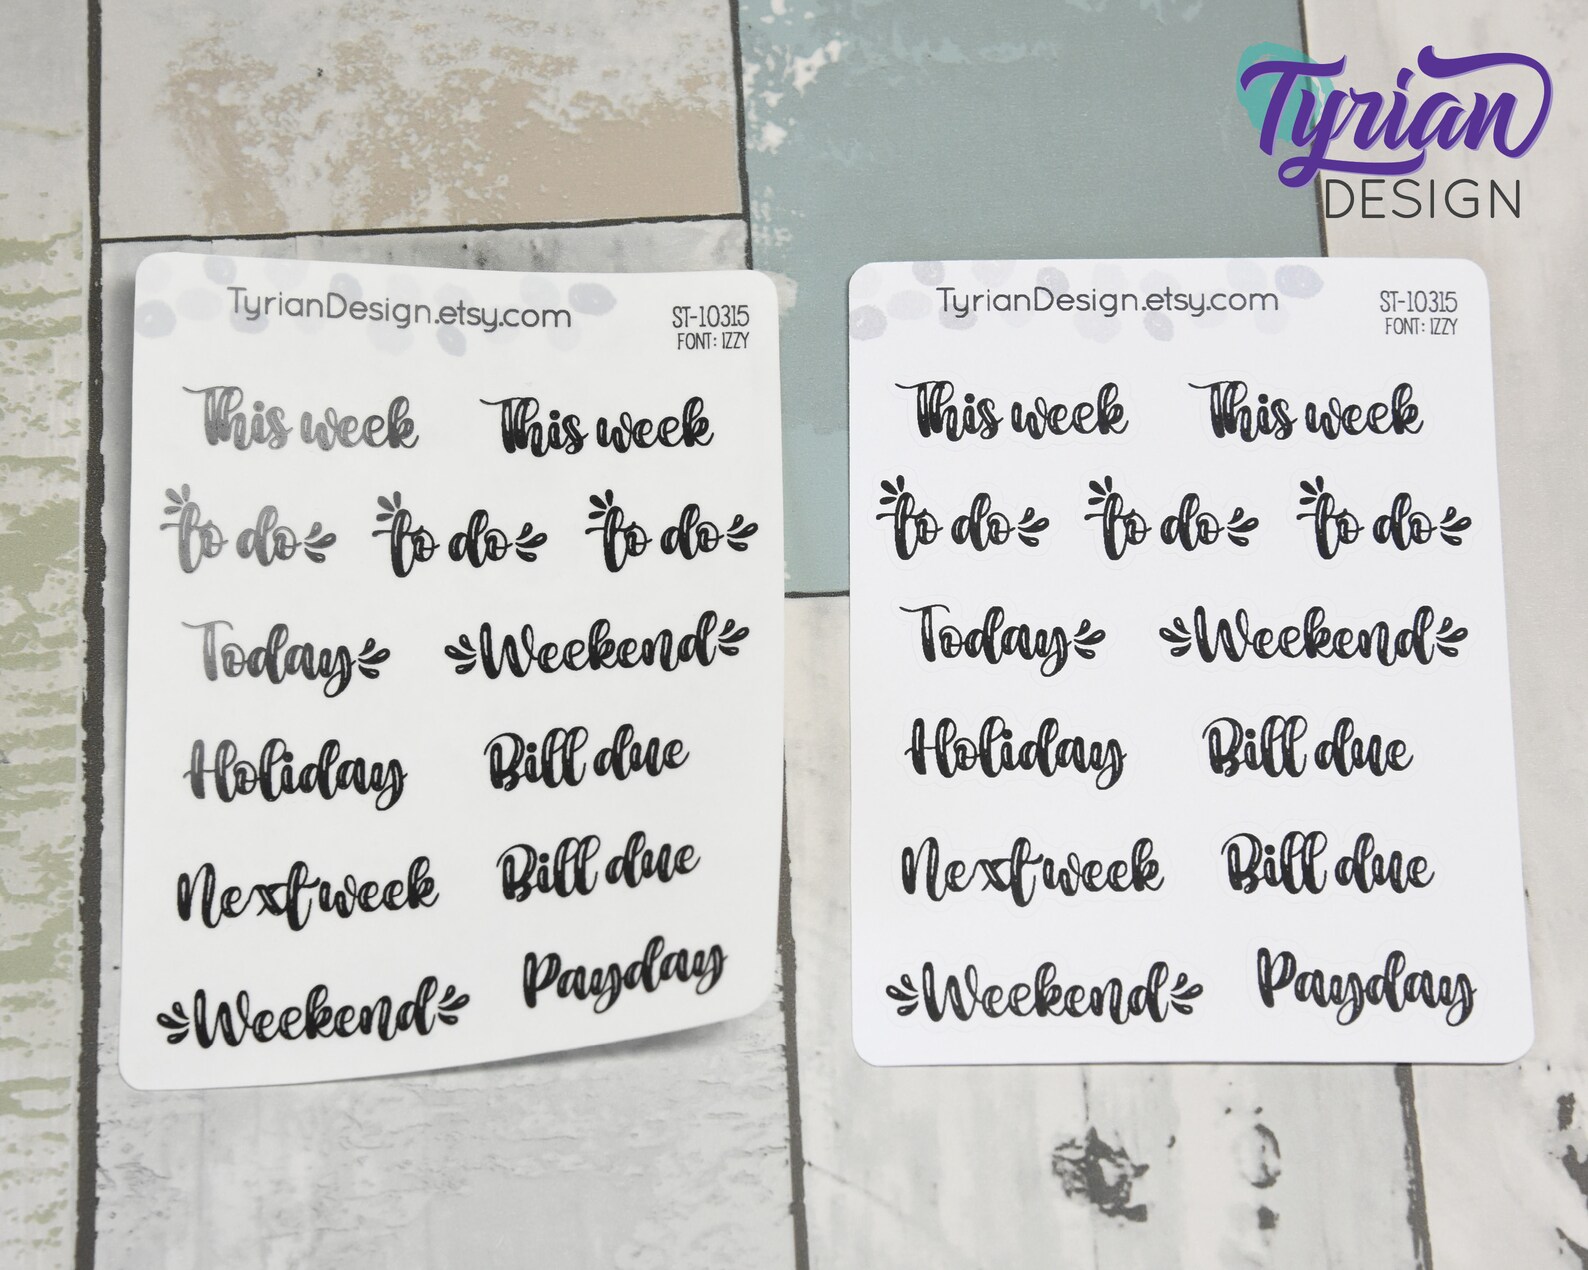 Tyrian
DESIGN
TyrianDesign.etsy.com
ST-10315
FONT: IZZY
This week This week
to do to do to do
Today Weekend
Holiday Bill due
Next week Bill due
Weekend Payday
TyrianDesign.etsy.com
ST-10315
FONT: IZZY
This week This week
to do to do to do
Today Weekend
Holiday Bill due
Next week Bill due
Weekend Payday